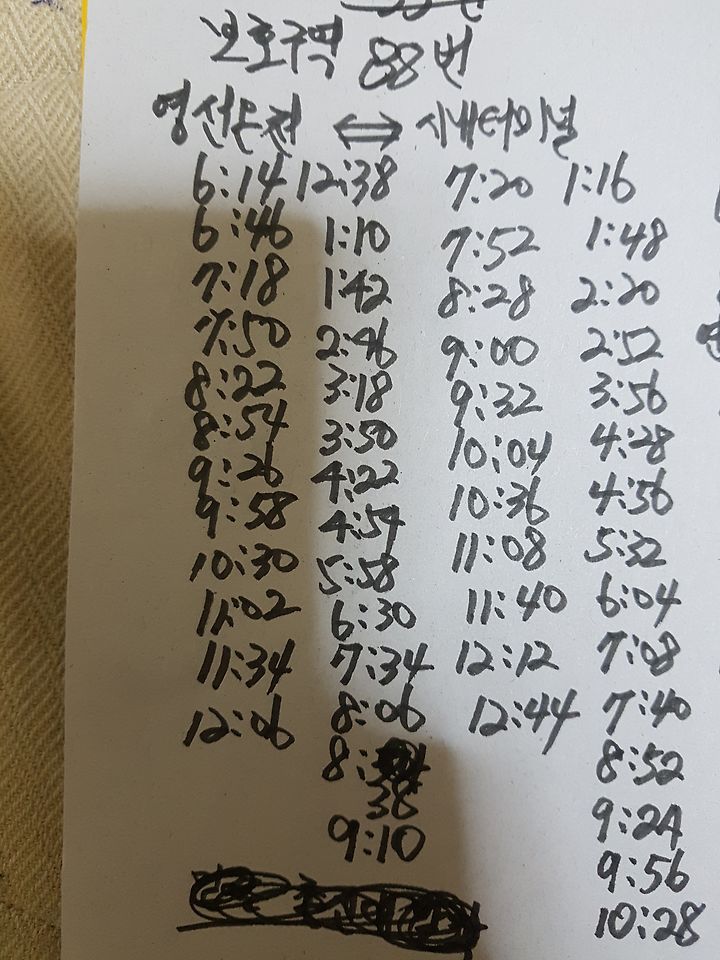 보호구역 88번
영선운전 ⇔ 시내터미널
6:14 12:38 7:20 1:16
6:46 1:10 7:52 1:48
7:18 1:42 8:28 2:20
7:50 2:46 9:00 2:52
8:22 3:18 9:32 3:56
8:54 3:50 10:04 4:28
9:26 4:22 10:36 4:56
9:58 4:54 11:08 5:32
10:30 5:58 11:40 6:04
11:02 6:30 12:12 7:08
11:34 7:34 12:44 7:40
12:06 8:06 8:52
8:38 9:24
9:10 9:56
10:28